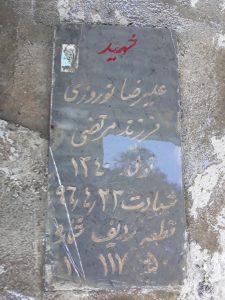 شهید
علیرضا نوروزی
فرزند مرتضی
تولد ۱۳۴۰
شهادت ۹۶/۴/۲۳
قطعه ردیف شماره
۵۰ ۱۱۷ ۱